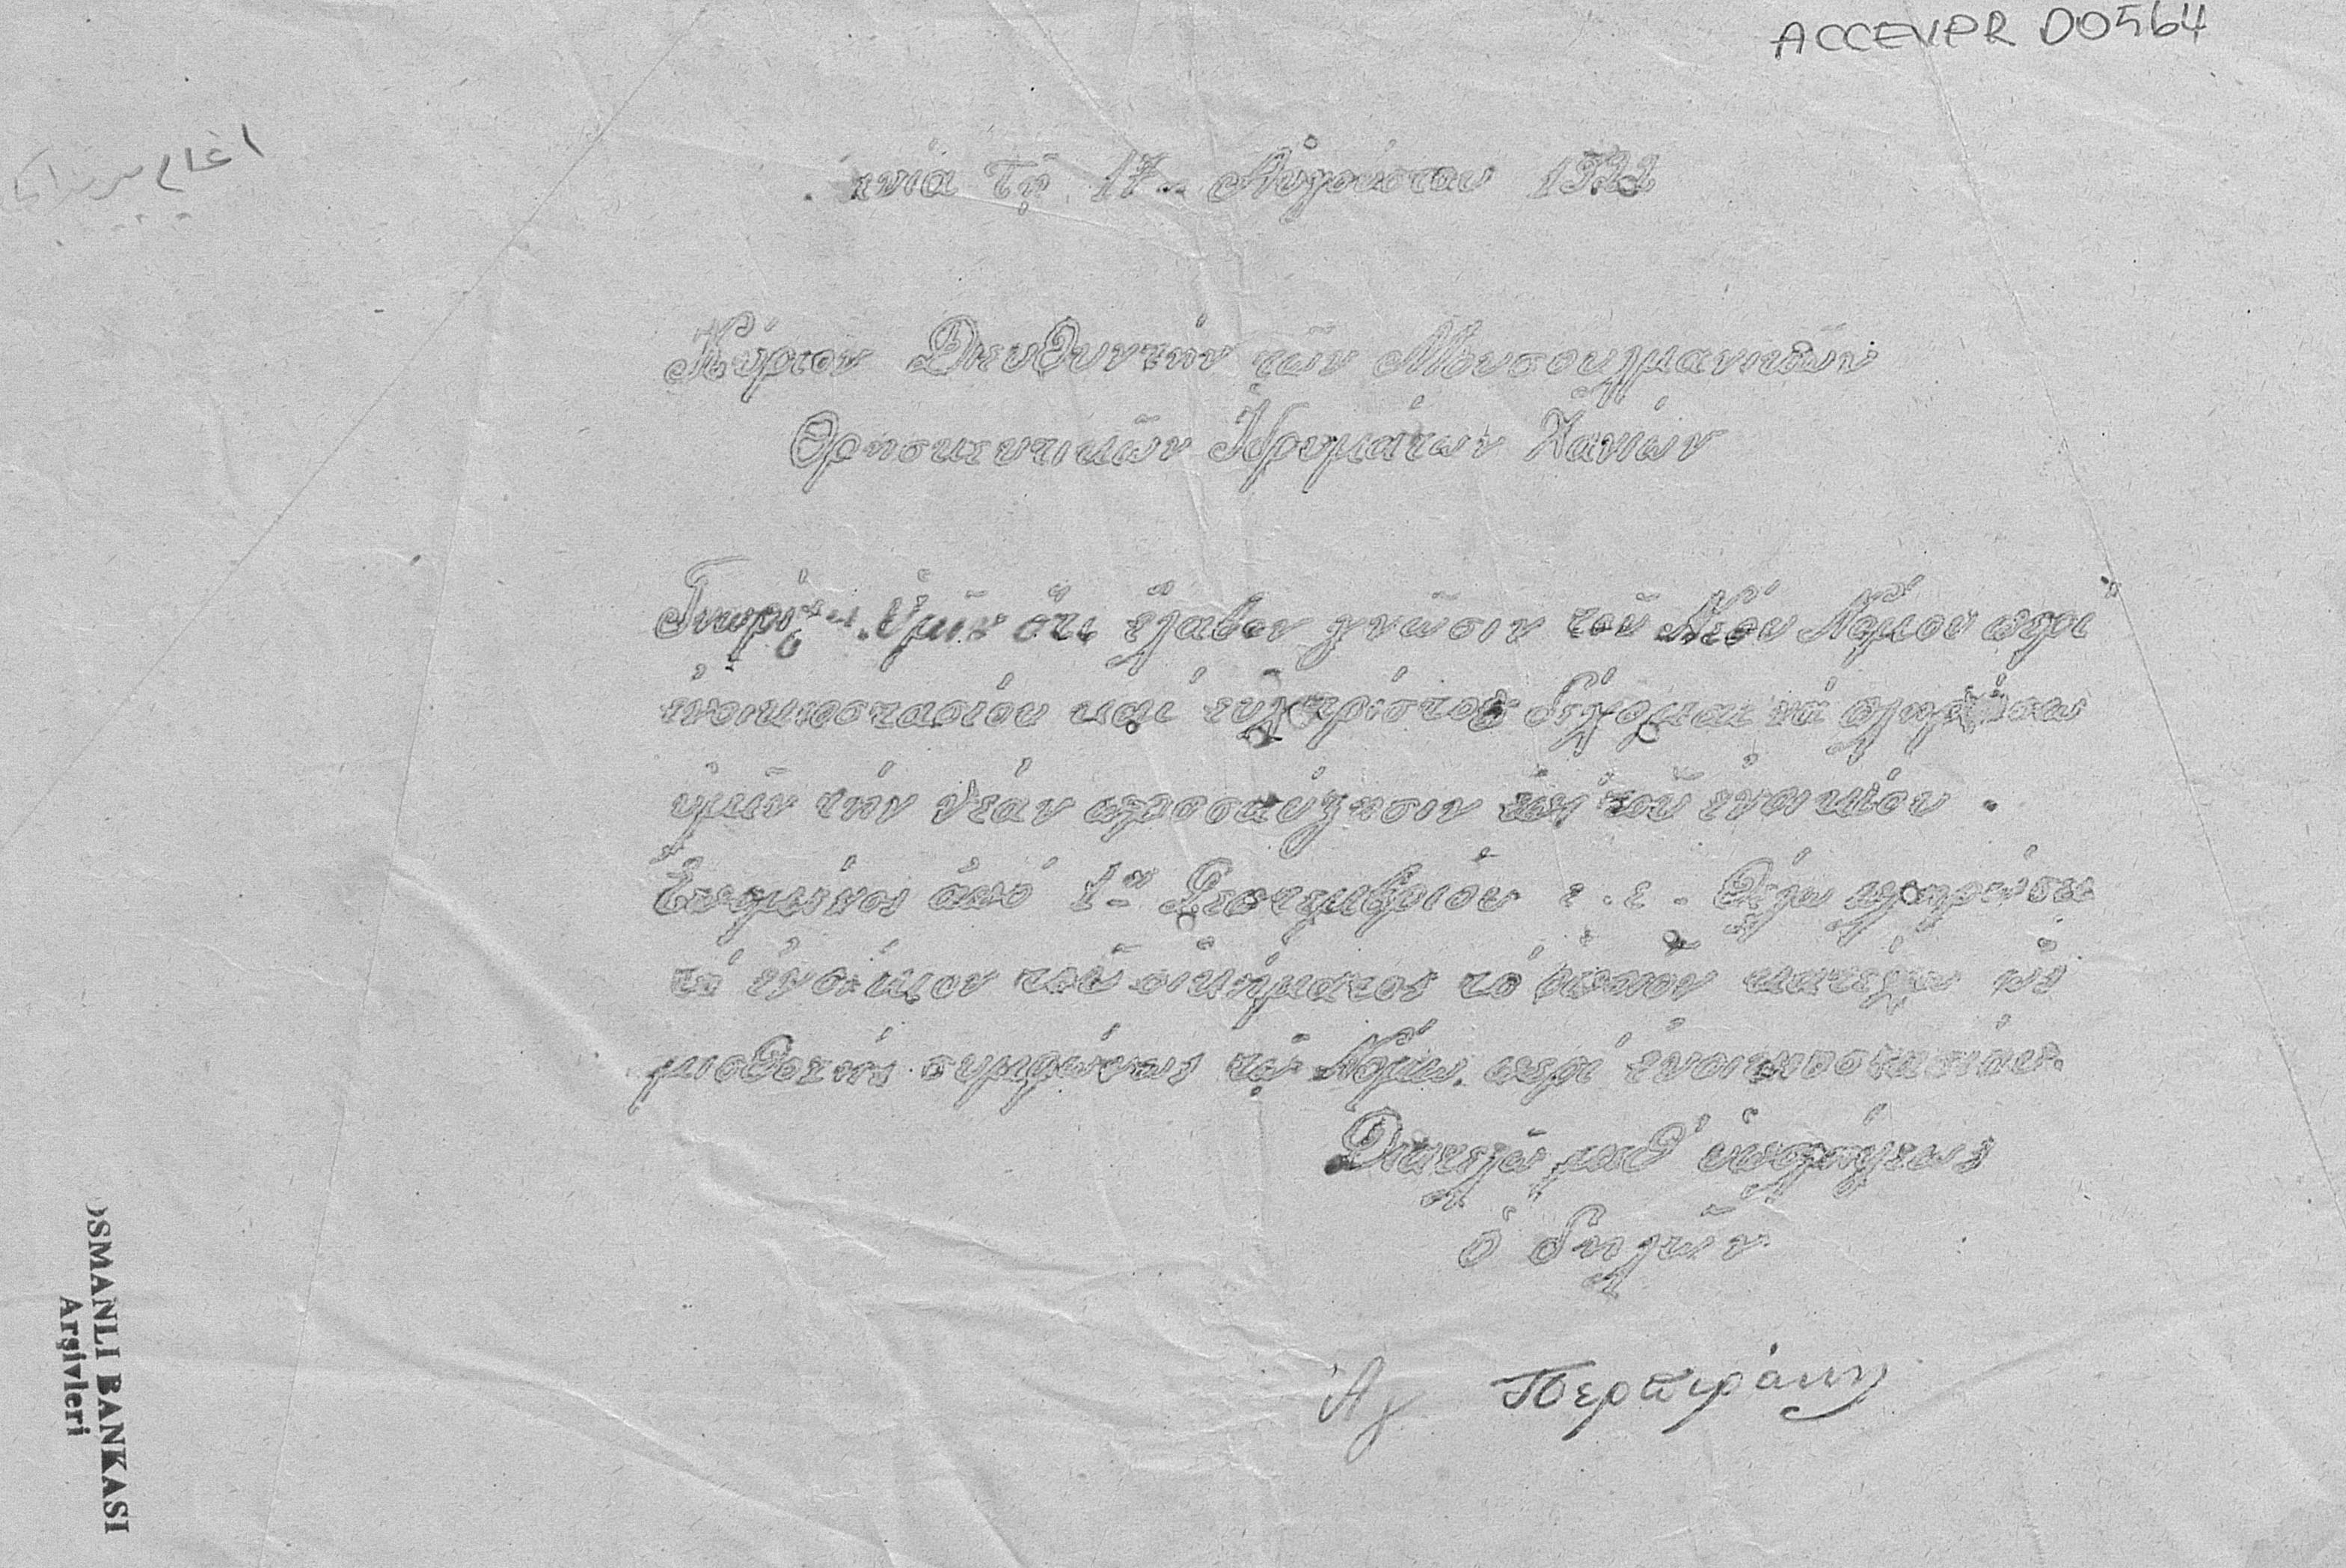 ACCEVPR D0564
νιά τῇ 17 Αὐγούστου 1922
Κύριον Διευθυντήν τῶν Μουσουλμανικῶν
Θρησκευτικῶν Ἱδρυμάτων Χανίων
Γνωρίζω Ὑμῖν ὅτι ἔλαβον γνῶσιν τοῦ Νέου Νόμου περί
ἐνοικιοστασίου καί εὐχαρίστως δέχομαι νά πληρώσω
ὑμῖν τήν νέαν προσαύξησιν ἐπί τοῦ ἐνοικίου.
Ἑπομένως ἀπό 1ης Σεπτεμβρίου ἐ.ἔ. Θέλω πληρώσει
τό ἐνοίκιον τοῦ οἰκήματος τό ὁποῖον κατέχω ὡς
μισθωτής συμφώνως τῷ Νόμῳ περί ἐνοικιοστασίου.
Διατελῶ μεθ' ὑπολήψεως
ὁ δηλῶν
Ἀγ Περπιράκη
OSMANLI BANKASI
Arşivleri